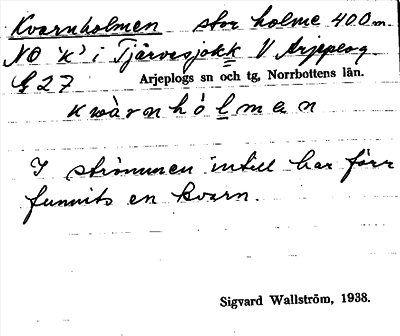 Kvarnholmen stor holme 400 m
NO 'k' i Tjärvesjokk V Arjeplog
G 27 Arjeplogs sn och tg, Norrbottens län.
kwàrnhólmen
I strömmen intill har förr
funnits en kvarn.
Sigvard Wallström, 1938.